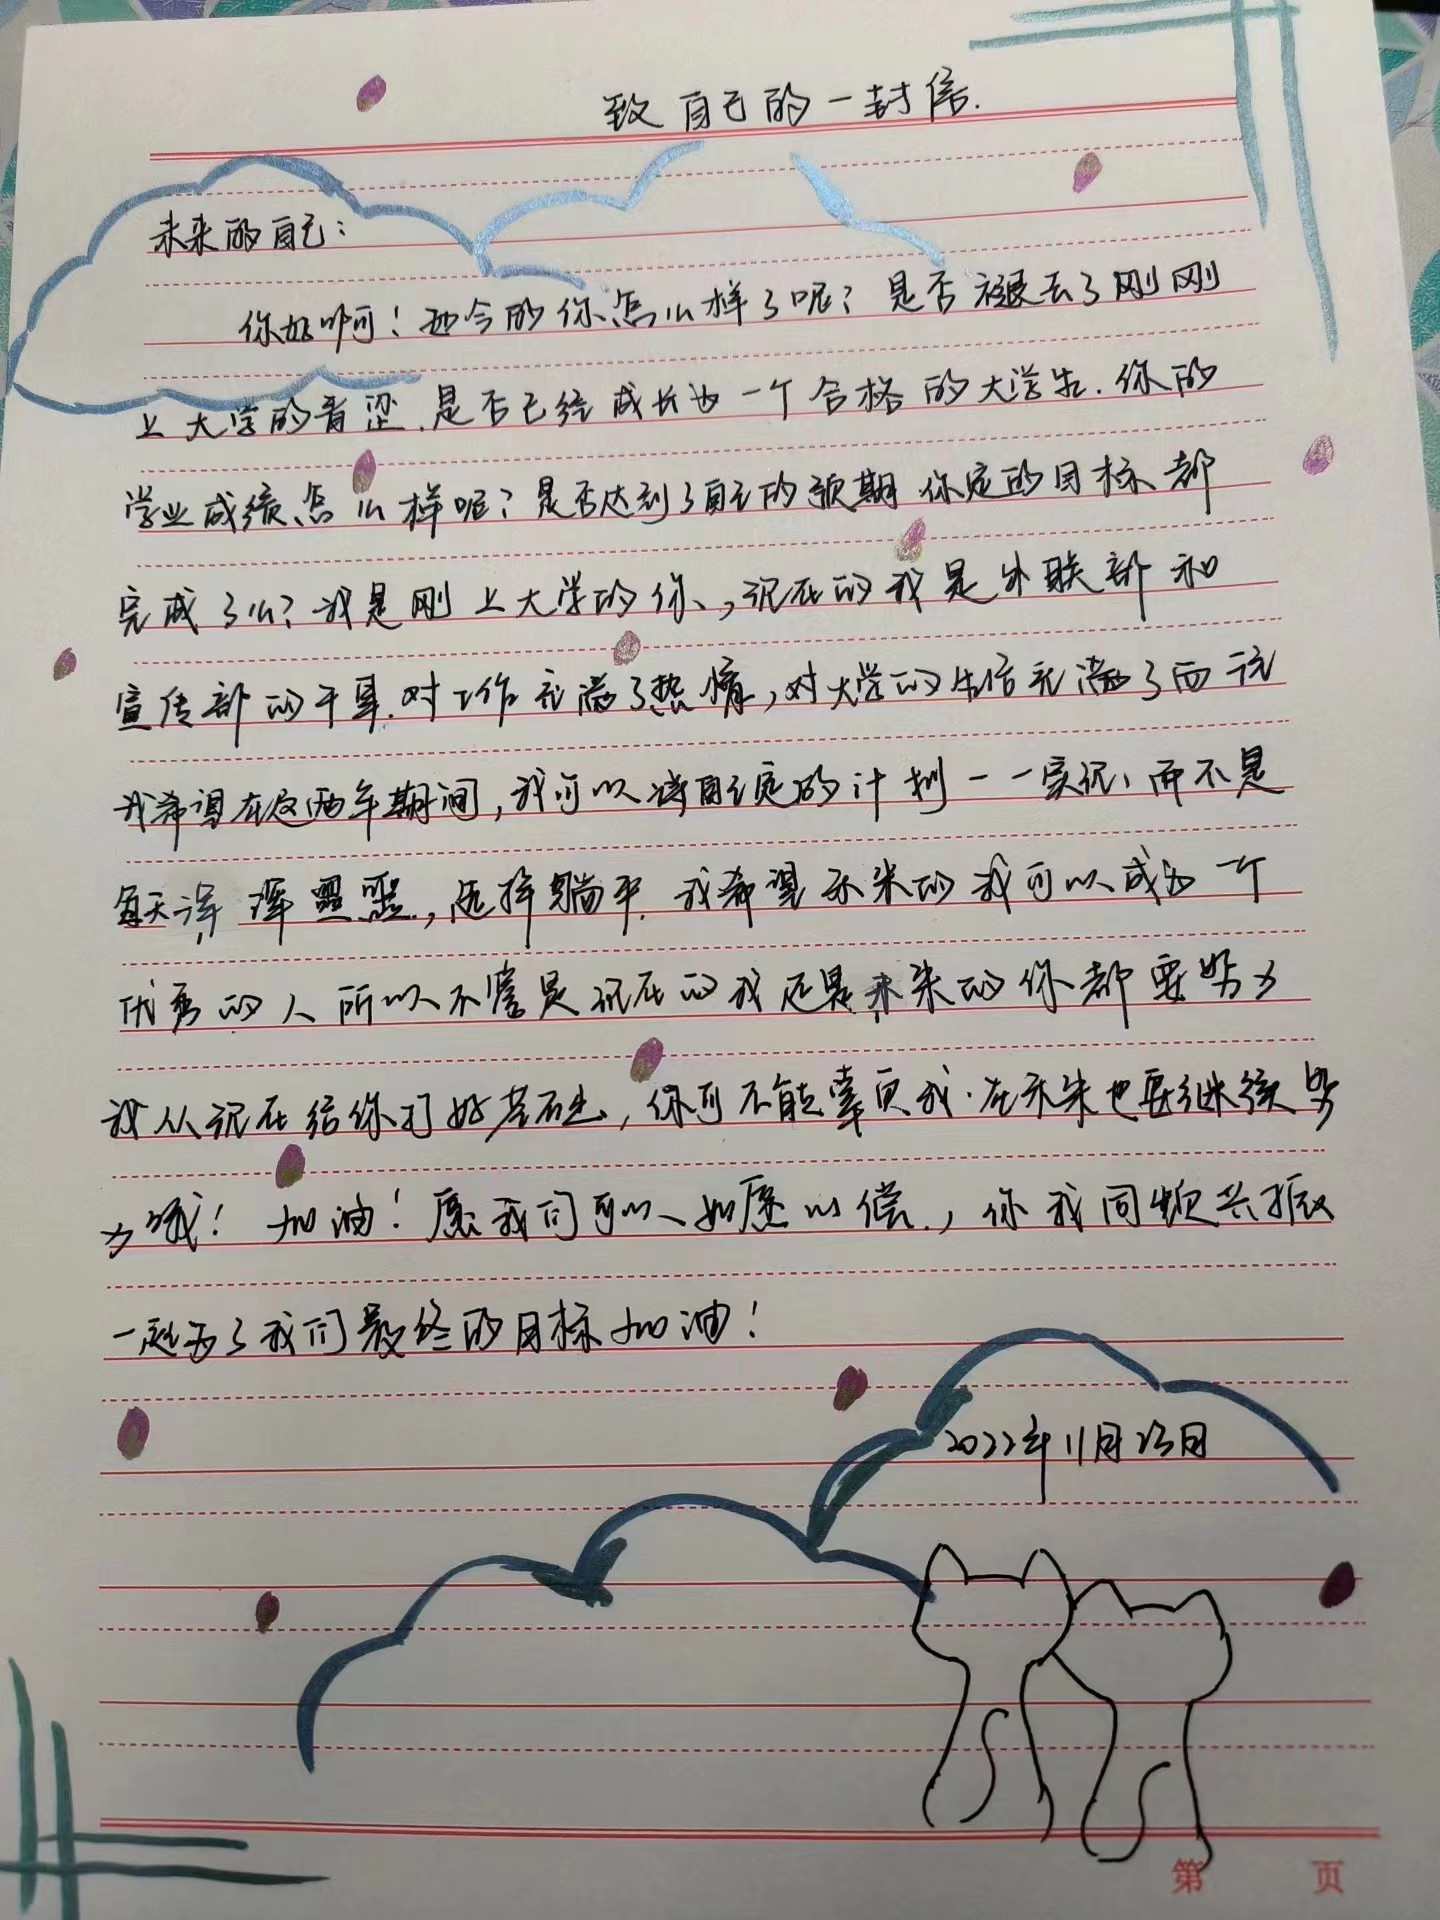 致自己的一封信.
未来的自己:
你好啊!如今的你怎么样了呢?是否褪去了刚刚
上大学的青涩.是否已经成长为一个合格的大学生.你的
学业成绩怎么样呢?是否达到了自己的预期 你定的目标都
完成了么?我是刚上大学的你、,现在的我是外联部和
宣传部的干事.对工作充满了热情,对大学的生活充满了
我希望在这两年期间,我可以将自己定的计划一一实现、而不是
每天浑浑噩噩.,选择躺平.我希望未来的我可以成为一个
优秀的人所以不管是现在的我还是未来的你都要努力
我从现在给你打好基础,你可不能辜负我.在未来也要继续努
力哦!加油!愿我们可以如愿以偿.,你我同频共振
一起为了我们最终的目标加油!
2022年11月23日
第 页